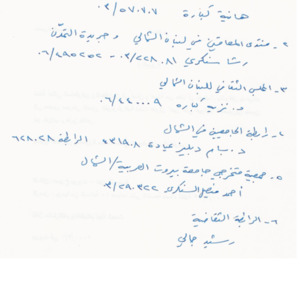 هانية كبارة ٠٣/٥٧٠٧٠٧
٢- منتدى المعاقين في لبنان الشمالي وجريدة التمدّن
رشا سنكري ٠٣/٢٢٨٠٨١ - ٠٦/٤٩٥٢٥٢
٣- المجلس الثقافي للبنان الشمالي
د. نزيه كبارة ٠٦/٤٤٠٠٠٩
٤- رابطة الجامعيين في الشمال
د. بسام دبليز عيادة الرابطة
٥- جمعية متخرجي جامعة بيروت العربية/الشمال
أحمد السنكري ٠٣/٢٩٠٣٢٢
٦- الرابطة الثقافية
رشيد جمالي